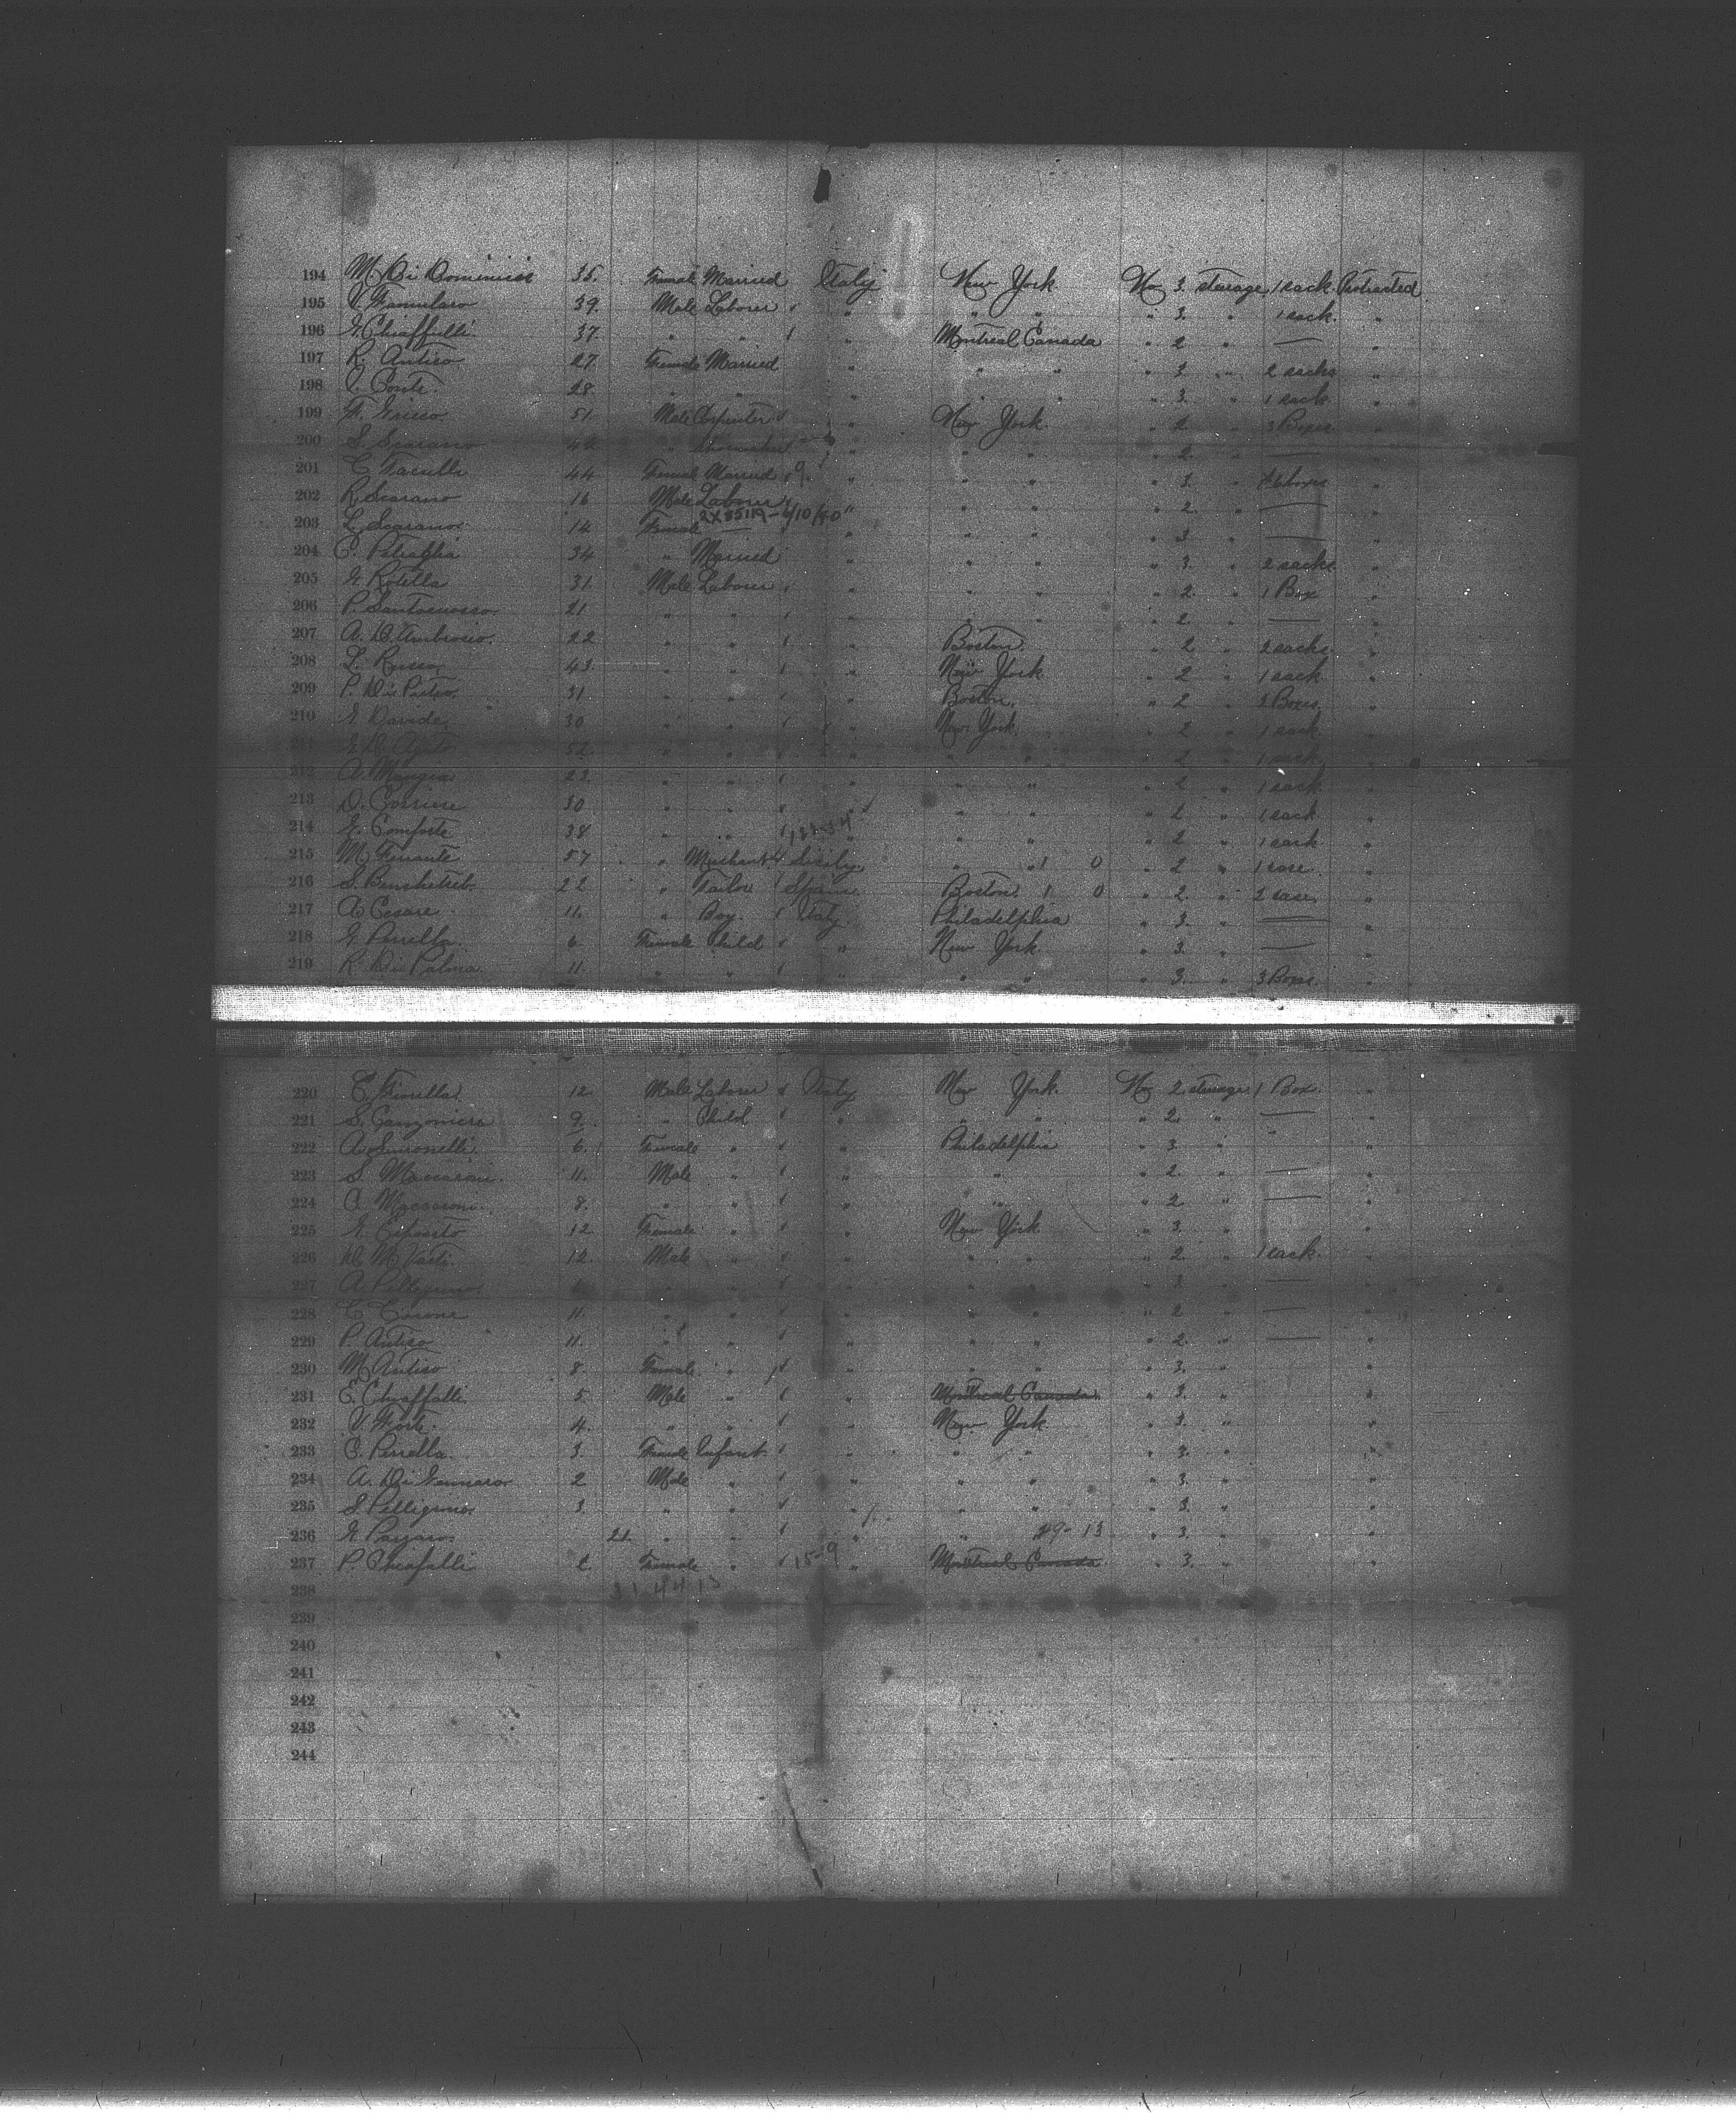 194 M Di Dominicis 35. Female Married Italy New York No 3. sterage 1 sack. Protracted
195 V. Famularo 39. Male Laborer " " " " 3. " 1 sack. "
196 G. Chiaffulli 37. " " " Montreal Canada " 2 " — "
197 R. Antico 27. Female Married " " " " 3. " 2 sacks "
198 V. Conti. 28. " " " " " " 3. " 1 sack "
199 F. Grieco 51. Male Carpenter " New York " 2 " 3 Boxes "
200 S. Scarano 42 " Shoemaker " " " " 2. " — "
201 C. 44 Female Married 9 " " " " 3. " boxes "
202 R. Scarano 16 Male Laborer " " " " 2. " — "
2X85119-4/10/40
203 L. Scarano. 14 Female — " " " " 3 " — "
204 C. Petraglia 34 " Married " " " " 3. " 2 sacks "
205 G. Rotella 31. Male Laborer " " " " 2. " 1 Box "
206 P. Santomasso. 21 " " " " " " 2. " — "
207 A. D'Ambrosio. 22 " " " Boston. " 2 " 2 sacks "
208 L. Russo 43. " " " New York " 2 " 1 sack "
209 P. Di Pietro. 31 " " " Boston. " 2 " 2 Boxes. "
210 G. Davide 30 " " " New York. " 2 " 1 sack "
211 G. D. Agato 52 " " " " " " 2 " 1 sack "
212 A. Mangia 23. " " " " " " 2 " 1 sack "
213 D. Corriere 30 " " " " " " 2 " 1 sack "
214 G. Comforte 38 " " " " " " 2 " 1 sack "
215 M. Ferrante 57 " Merchant Sicily. " " 1 0 " 2 " 1 case. "
216 S. 22 " Tailor Spain. Boston. 1 0 " 2. " 2 cases "
217 A. Cesare. 11. " Boy. Italy. Philadelphia " 3. " — "
218 G. Perrella. 6. Female Child " New York. " 3. " — "
219 R. Di Palma 11. " " " " " " 3. " 3 Boxes. "
220 C. Fiorella. 12. Male Laborer Italy New York. No 2 sterage 1 Box "
221 S. Canzonieri 9. " Child " " " " 2. " — "
222 A. Simonelli. 6. Female " " Philadelphia " 3. " "
223 S. Maccaroni. 11. Male " " " " 2. " — "
224 C. Maccaroni. 8. " " " " " 2 " — "
225 G. Esposito 12 Female " " New York " 3. " "
226 12. Male " " " " " 2 " 1 sack. "
227 A. Pellegrino. " " " " " " 3 " — "
228 C. Cirone 11. " " " " " " 2 " — "
229 P. Antico 11. " " " " " " 2. " — "
230 M. Antico 8. Female " " " " " 3. " "
231 C. Chiaffalli 5. Male " " Montreal Canada. " 3. " "
232 V. Forte. 4. " " " New York " 3. " "
233 C. Perrella. 3. Female Infant " " " " 3. " "
234 A. Di Gennaro 2 Male " " " " " 3. " "
235 S. Pelligrino. 3. " " " " " " 3. " "
236 G. 21. " " " " 29-13 " 3. " "
237 P. Chiafalli 2 Female " 15-9 " Montreal Canada " 3. " "
238
239
240
241
242
243
244